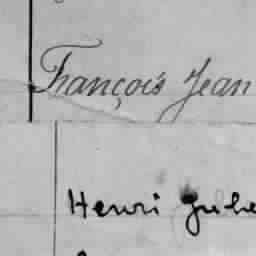 François Jean
Henri Jule